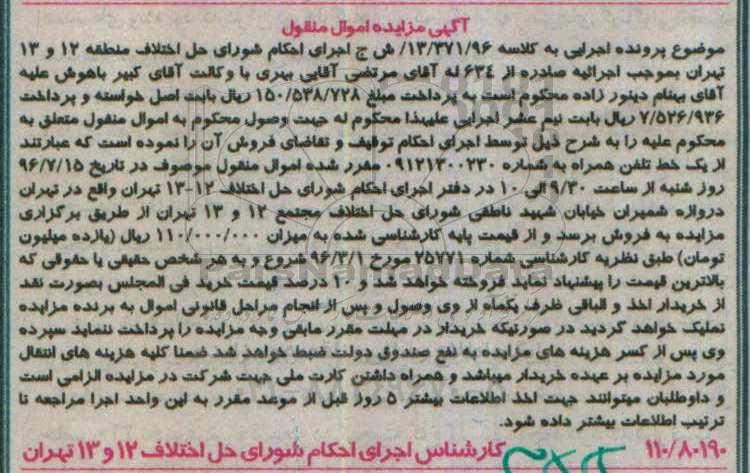 آگهی مزایده اموال منقول
موضوع پرونده اجرایی به کلاسه ۱۳/۳۷۱/۹۶/ ش ج اجرای احکام شورای حل اختلاف منطقه ۱۲ و ۱۳
تهران بموجب اجرائیه صادره از ۶۳٤ له آقای مرتضی آقایی بهری با وکالت آقای کبیر باهوش علیه
آقای بهنام دینور زاده محکوم است به پرداخت مبلغ ۱۵۰/۵۳۸/۷۲۸ ریال بابت اصل خواسته و پرداخت
۷/۵۲۶/۹۳۶ ریال بابت نیم عشر اجرایی علیهذا محکوم له جهت وصول محکوم به اموال منقول متعلق به
محکوم علیه را به شرح ذیل توسط اجرای احکام توقیف و تقاضای فروش آن را نموده است که عبارتند
از یک خط تلفن همراه به شماره ۰۹۱۲۱۳۰۰۲۳۰ مقرر شده اموال منقول موصوف در تاریخ ۹۶/۷/۱۵
روز شنبه از ساعت ۹/۳۰ الی ۱۰ در دفتر اجرای احکام شورای حل اختلاف ۱۲-۱۳ تهران واقع در تهران
دروازه شمیران خیابان شهید ناطقی شورای حل اختلاف مجتمع ۱۲ و ۱۳ تهران از طریق برگزاری
مزایده به فروش برسد و از قیمت پایه کارشناسی شده به میزان ۱۱۰/۰۰۰/۰۰۰ ریال (یازده میلیون
تومان) طبق نظریه کارشناسی شماره ۲۵۷۷۱ مورخ ۹۶/۳/۱ شروع و به هر شخص حقیقی یا حقوقی که
بالاترین قیمت را پیشنهاد نماید فروخته خواهد شد و ۱۰ درصد قیمت خرید فی المجلس بصورت نقد
از خریدار اخذ و الباقی ظرف یکماه از وی وصول و پس از انجام مراحل قانونی اموال به برنده مزایده
تملیک خواهد گردید در صورتیکه خریدار در مهلت مقرر مابقی وجه مزایده را پرداخت ننماید سپرده
وی پس از کسر هزینه های مزایده به نفع صندوق دولت ضبط خواهد شد ضمنا کلیه هزینه های انتقال
مورد مزایده بر عهده خریدار میباشد و همراه داشتن کارت ملی جهت شرکت در مزایده الزامی است
و داوطلبان میتوانند جهت اخذ اطلاعات بیشتر ۵ روز قبل از موعد مقرر به این واحد اجرا مراجعه تا
ترتیب اطلاعات بیشتر داده شود.
۱۱۰/۸۰۱۹۰ کارشناس اجرای احکام شورای حل اختلاف ۱۲ و ۱۳ تهران